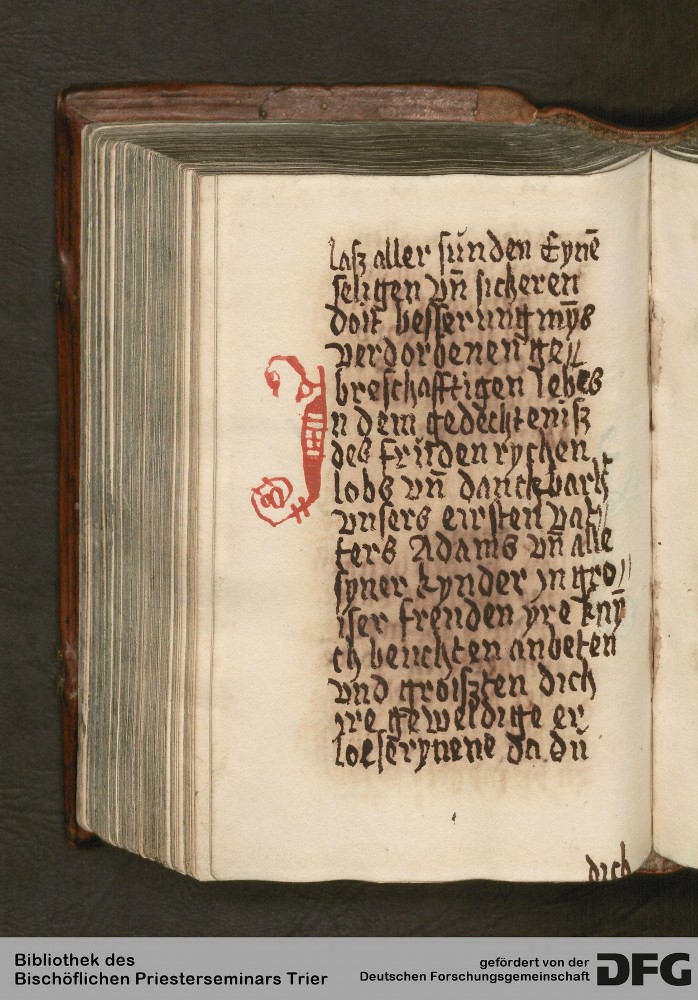 lasz aller sunden Eynē
seligen vñ sicheren
doit besserung mȳs
verdorbenen ge//
breschafftigen lebēs
Jn dem gedechtenisz
des freudenrychen
lobs vñ danckbark
vnsers eirsten vat//
ters Adams vñ alle
syner kynder jn gro//
isser freuden yre knȳ
ch beuchten anbeten
vnd groiszten dich
yre geweldige er
loeserynēne da dů
dich
Bibliothek des
Bischöflichen Priesterseminars Trier
gefördert von der
Deutschen Forschungsgemeinschaft DFG